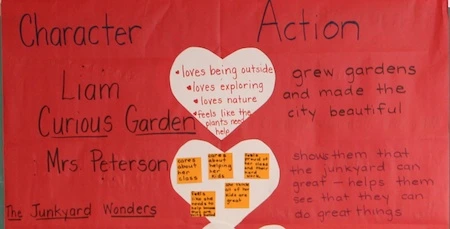 Character
Action
Liam
Curious Garden
• loves being outside
• loves exploring
• loves nature
• feels like the
plants need
help
grew gardens
and made the
city beautiful
Mrs. Peterson
The Junkyard Wonders
cares
about
her
class
cares
about
helping
her
kids
feels
proud of
her class
hard
work
feels
like she
needs to
help
kids are
great
shows them that
the junkyard can
great - helps them
see that they can
do great things